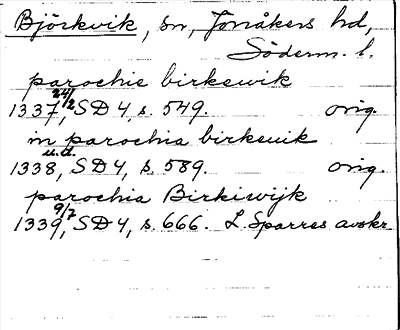 Björkvik, sn, Jönåkers hd,
Söderm. l.
parochie birkewik
1337 24/2, SD 4, s. 549. orig.
in parochia birkeuik
1338 u.d., SD 4, s. 589. orig.
parochia Birkiwijk
1339 9/7, SD 4, s. 666. L. Sparres avskr.